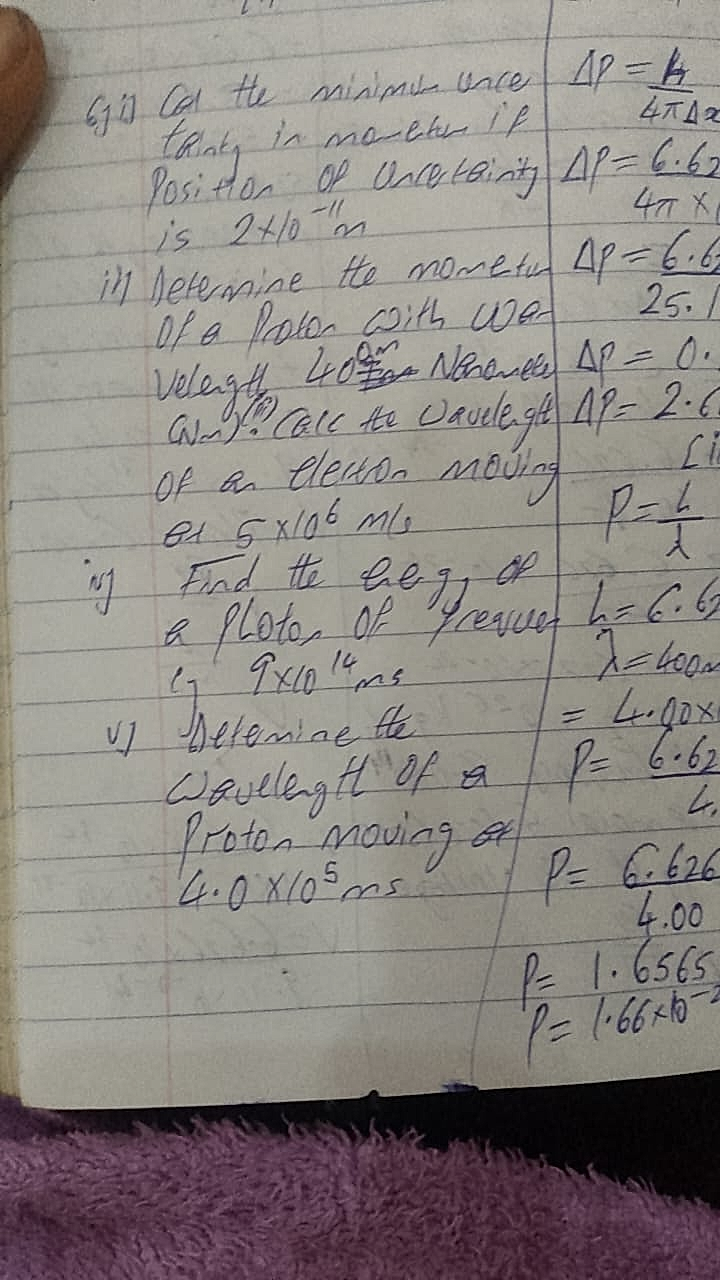 Cal the minimum unce
tainty in mometum if
Position of uncertainity
is 2×10⁻¹¹m
ii) Determine the mometum
Of a Proton with wa
velength 400nm Nanomete
(Nm)? (iii) Calc the Wavelenght
Of an electron moving
at 5×10⁶ m/s
iv) Find the energy of
a photon Of frequen
cy 9×10¹⁴ms
v) Determine the
Wavelenght Of a
Proton moving at
4.0×10⁵ms
ΔP = h
4πΔx
ΔP = 6.62
4π ×
ΔP = 6.6
25.1
ΔP = 0.
ΔP = 2.6
[ii
P = h
λ
h = 6.62
λ = 400n
= 4.00×
P = 6.62
4.
P = 6.626
4.00
P = 1.6565
P = 1.66×10⁻²